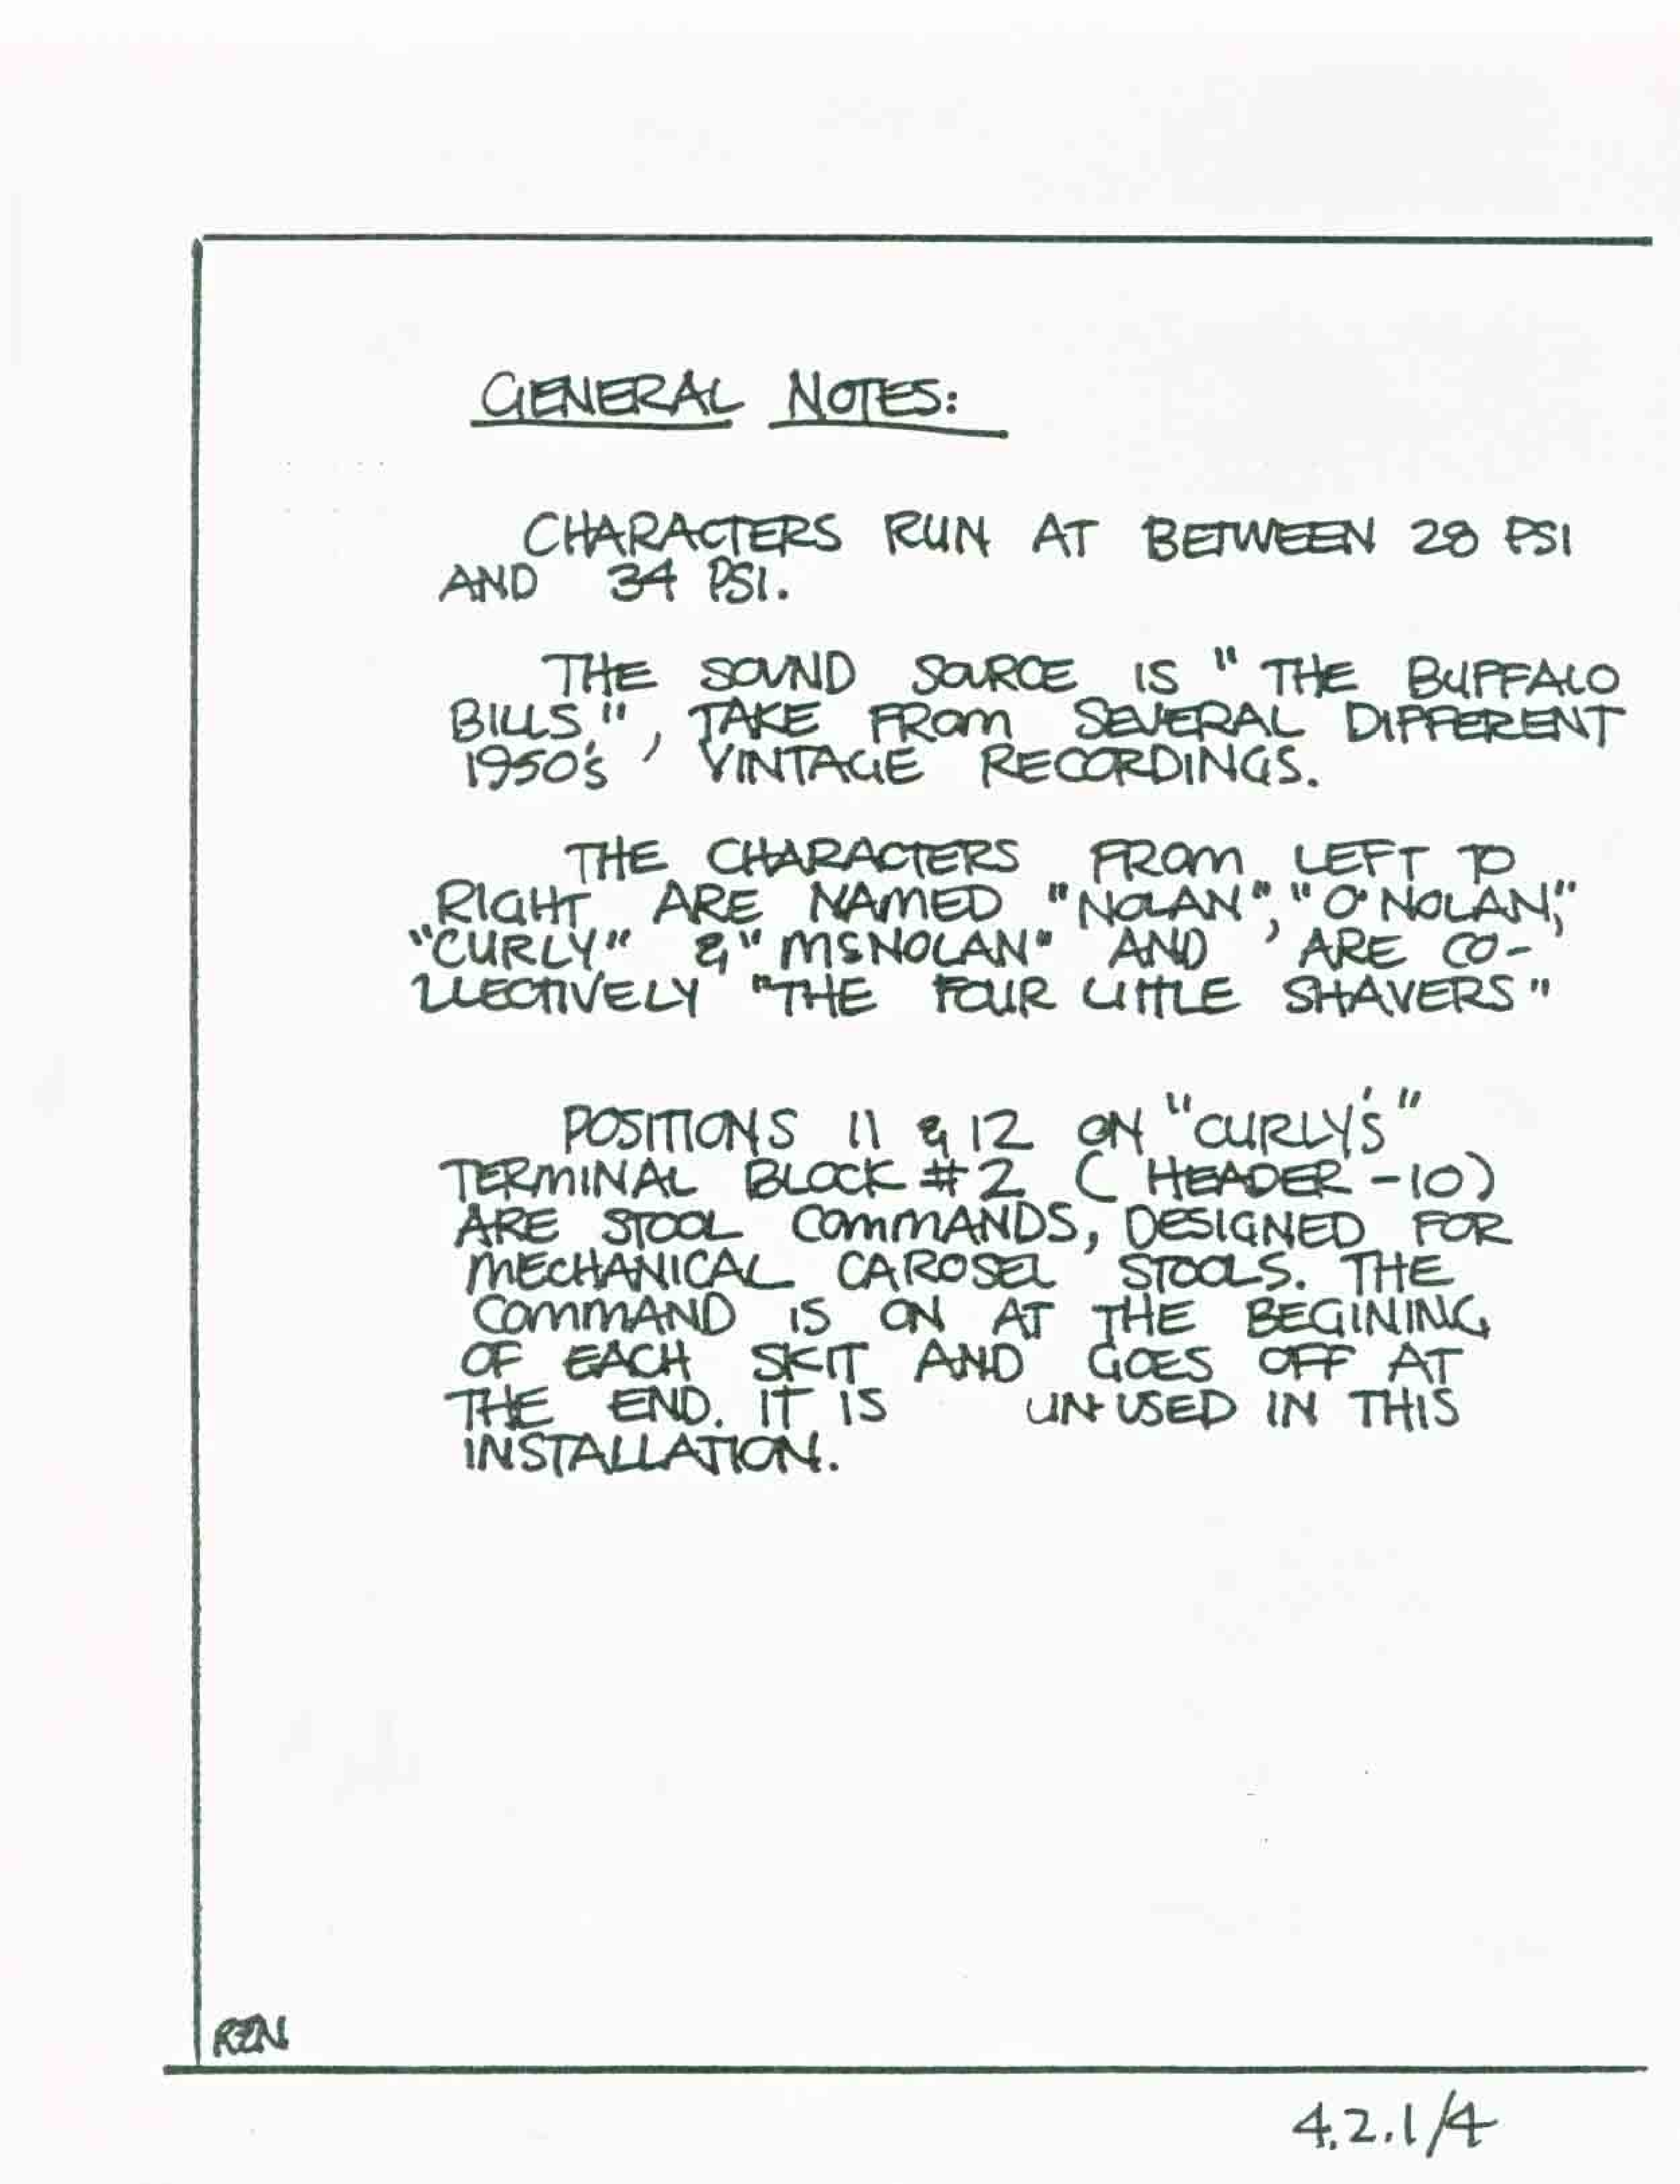 GENERAL NOTES:
CHARACTERS RUN AT BETWEEN 28 PSI
AND 34 PSI.
THE SOUND SOURCE IS "THE BUFFALO
BILLS," , TAKE FROM SEVERAL DIFFERENT
1950's, VINTAGE RECORDINGS.
THE CHARACTERS FROM LEFT TO
RIGHT ARE NAMED "NOLAN", "O'NOLAN,"
"CURLY" & "McNOLAN" AND, ARE CO-
LLECTIVELY "THE FOUR LITTLE SHAVERS"
POSITIONS 11 & 12 ON "CURLY'S"
TERMINAL BLOCK #2 (HEADER -10)
ARE STOOL COMMANDS, DESIGNED FOR
MECHANICAL CAROSEL STOOLS. THE
COMMAND IS ON AT THE BEGINING
OF EACH SKIT AND GOES OFF AT
THE END. IT IS UN-USED IN THIS
INSTALLATION.
RZN
4.2.1/4